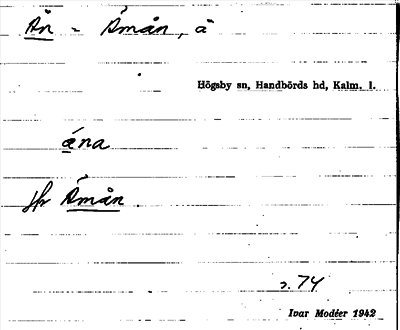 Ån = Åmån, å
Högsby sn, Handbörds hd, Kalm. l.
åna
jfr Åmån
s. 74
Ivar Modéer 1942